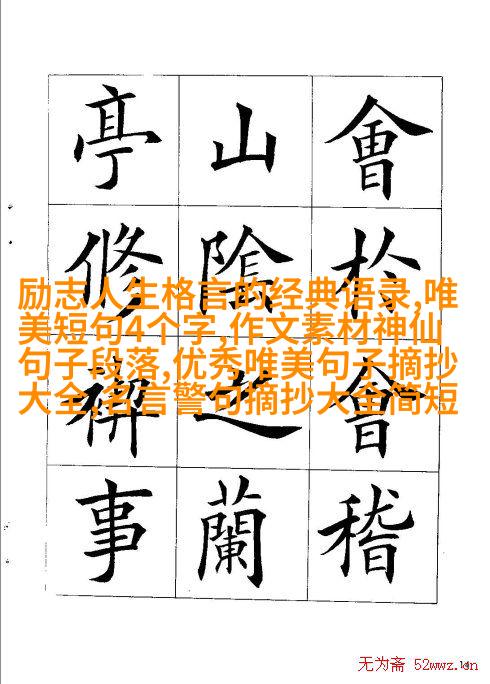 會於會稽
山陰之蘭
亭修禊事
励志人生格言的经典语录,唯
美短句4个字,作文素材神仙
句子段落,优秀唯美句子摘抄
大全,名言警句摘抄大全简短
无为斋 52wwz.cn